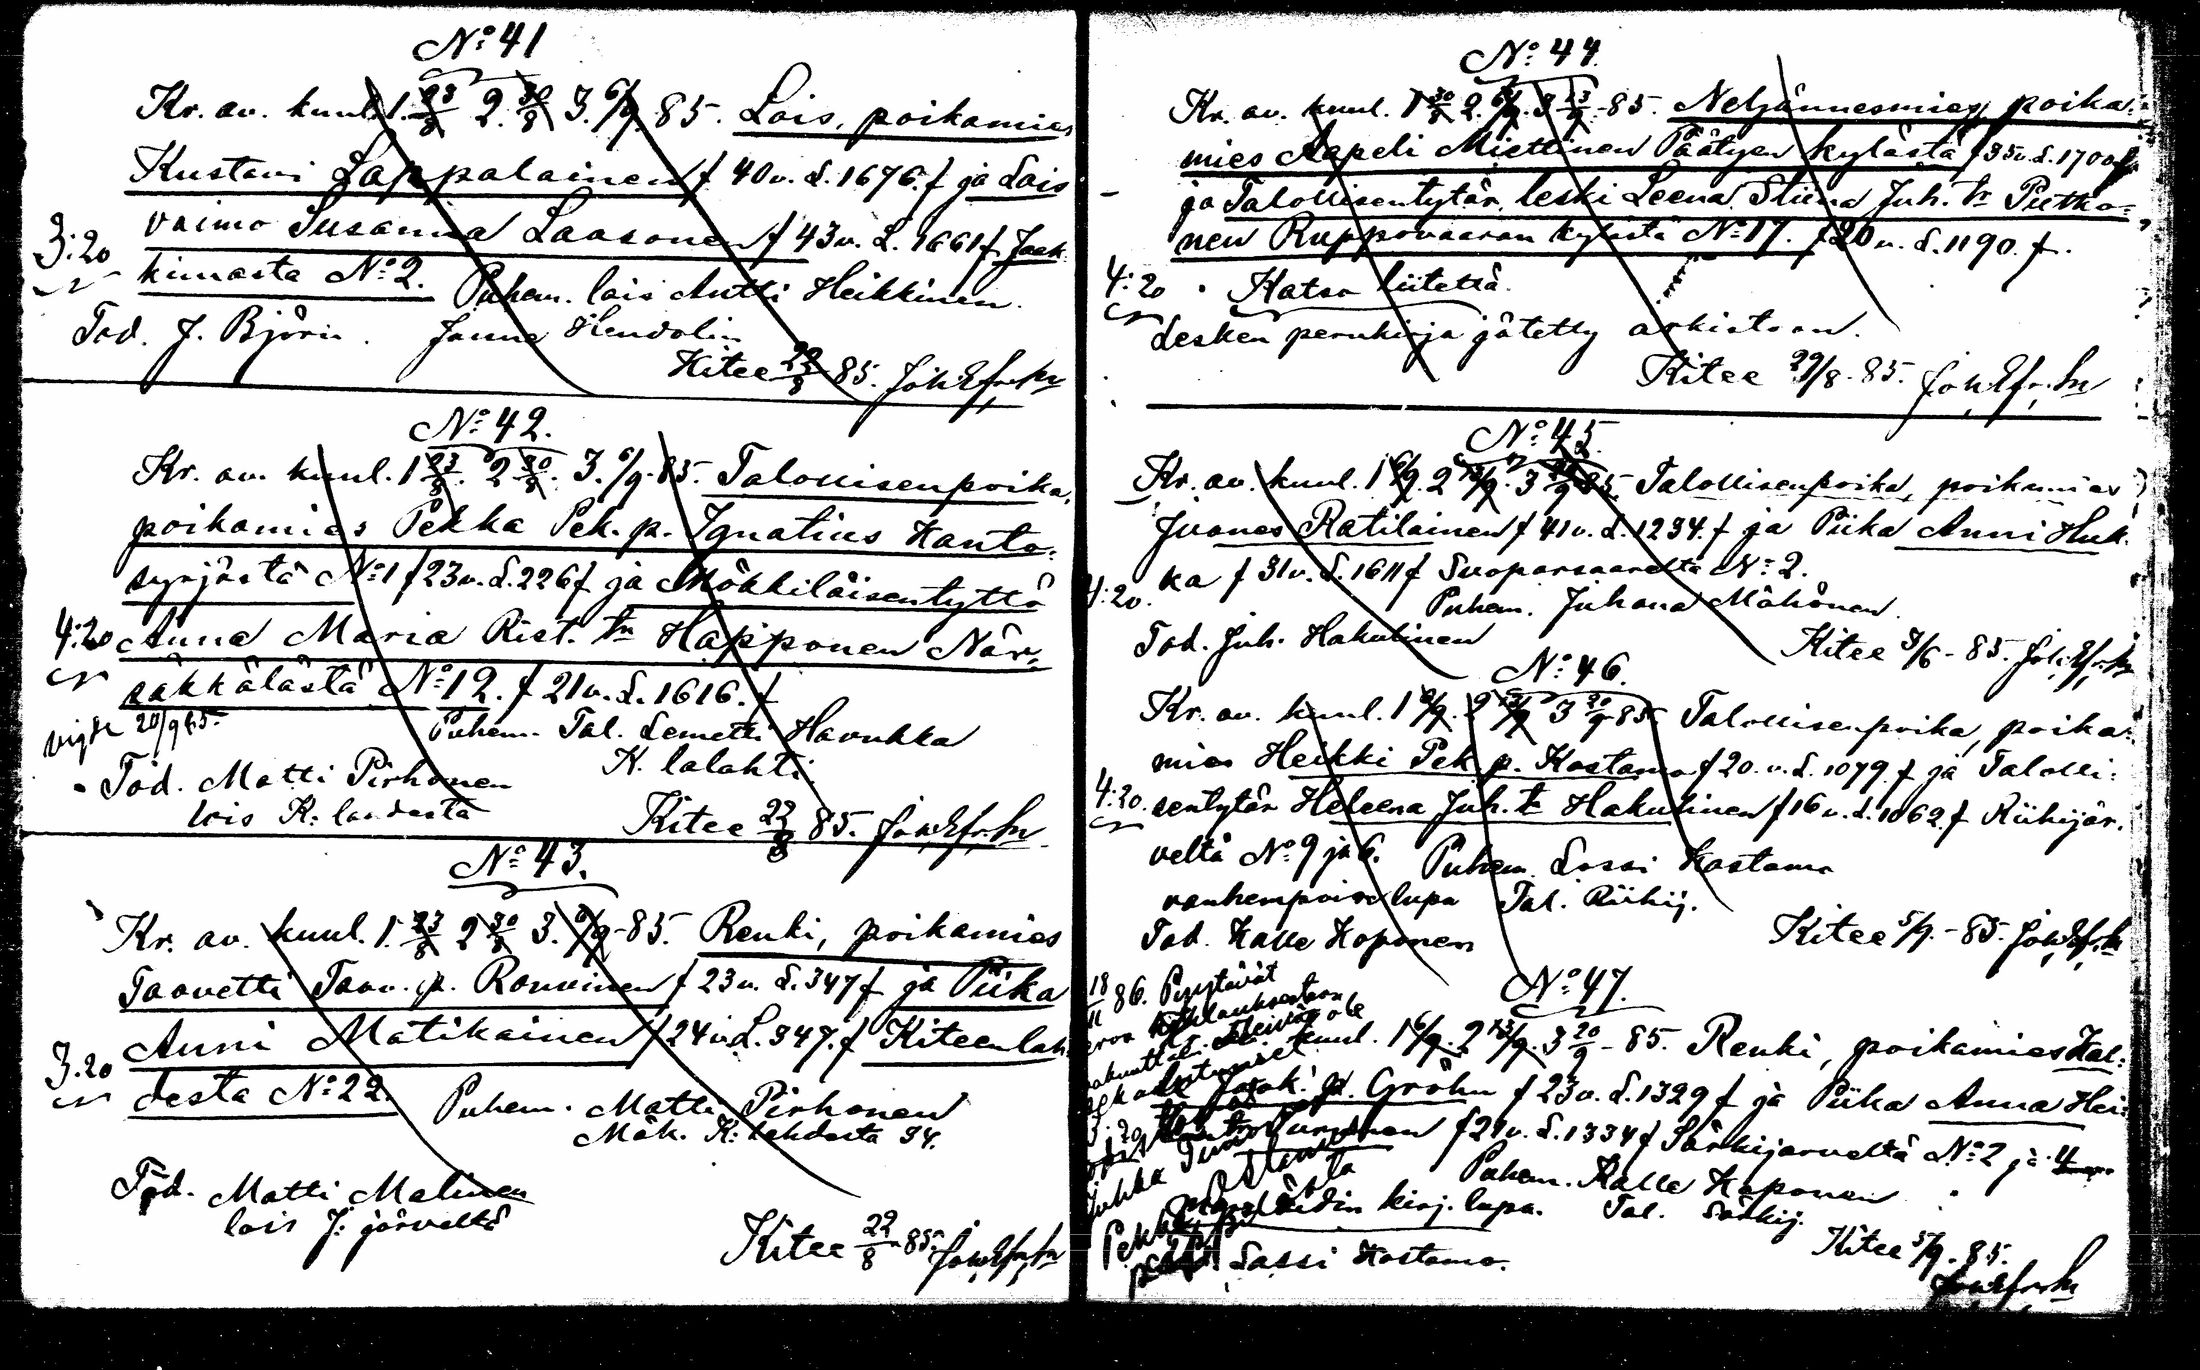 No: 41
Kr. av. kuul. 1. 23/8 2. 30/8 3. 6/9. 85. Lois, poikamies
Kustavi Lappalainen f 40 v. L. 1676. f ja Lois
vaimo Susanna Laasonen f 43 v. L. 1661 f Jaak-
3:20
kimasta No: 2. Puhem. lois Antti Heikkinen.
Tod. J. Björn. Janne Hendolin
Kitee 22/8 85.
No: 42.
Kr. av. kuul. 1 23/8. 2 30/8. 3. 6/9. 85. Talollisenpoika,
poikamies Pekka Pek. p. Ignatius Kanto-
syrjästä No: 1 f 23 v. L. 226 f ja Mökkiläisentyttö
4:20 Anna Maria Rist. tr Happonen När-
säkkälästä No: 12. f 21 v. L. 1616. f
Puhem. Tal. Lemetti Havukka
K. lalahti
Tod. Matti Pirhonen
lois K: lahdesta
Kitee 22/8 85.
No: 43.
Kr. av. kuul. 1. 23/8 2 30/8 3. 6/9 - 85. Renki, poikamies
Taavetti Taav. p. Ronvinen f 23 v. L. 347 f ja Piika
Anni Matikainen f 24 v. L. 347. f Kiteenlah-
3.20
desta No: 22. Puhem. Matti Pirhonen
Mök. K: lahdesta 34.
Tod. Matti Malinen
lois J: järveltä
Kitee 22/8 85.
No: 44.
Kr. av. kuul. 1 30/8 2. 6/9. 3 13/9. 85. Neljännesmies, poika-
mies Aapeli Miettinen Päätyen kylästä f 35 v. L. 1700 f
ja Talollisentytär, leski Leena Stiina Juh. tr Putko-
nen Ruppovaaran kylästä No: 17. f 20 v. L. 1190. f.
4:20 Katso liitettä.
Lesken perukirja jätetty arkistoon.
Kitee 29/8. 85.
No: 45.
Kr. av. kuul. 1 6/9. 2 13/9. 3 20/9 85. Talollisenpoika, poikamies
Juanes Ratilainen f 41 v. L. 1234. f ja Piika Anni Huk-
ka f 31 v. L. 1611 f Suoparsaarelta No: 2.
4:20.
Puhem. Juhana Mähönen.
Tod. Juh. Hakulinen
Kitee - 85.
No: 46.
Kr. av. kuul. 1 6/9. 2 13/9 3 20/9 85. Talollisenpoika, poika-
mies Heikki Pek. p. Kostamo f 20. v. L. 1079. f ja Talolli-
4:20. sentytär Heleena Juh. tr Hakulinen f 16 v. L. 1062. f Riihijär-
veltä No: 9 ja 6. Puhem. Lassi Kostamo
vanhempoisa lupa Tal. Riihij.
Tod. Kalle Koponen
Kitee 5/9. - 85.
No: 47.
86. Pyytävät
kuul. 1 6/9. 2 13/9. 3 20/9 - 85. Renki, poikamies Kal-
Jaak. p. Gröhn f 23 v. L. 1329 f ja Piika Anna Hei-
f 21 v. L. 1334 f Särkijarveltä No: 2 ja 4
Puhem. Kalle Koponen
kirj. lupa. Tal. Särkij.
Lassi Kostamo.
Kitee 5/9. 85.